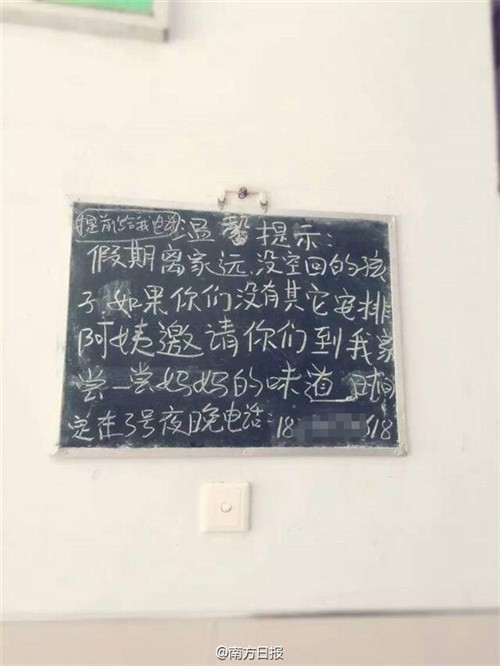 提前给我电话
温馨提示:
假期离家远、没空回的孩
子如果你们没有其它安排
阿姨邀请你们到我家
尝一尝妈妈的味道 时间
定在3号夜晚电话:18 618
@南方日报